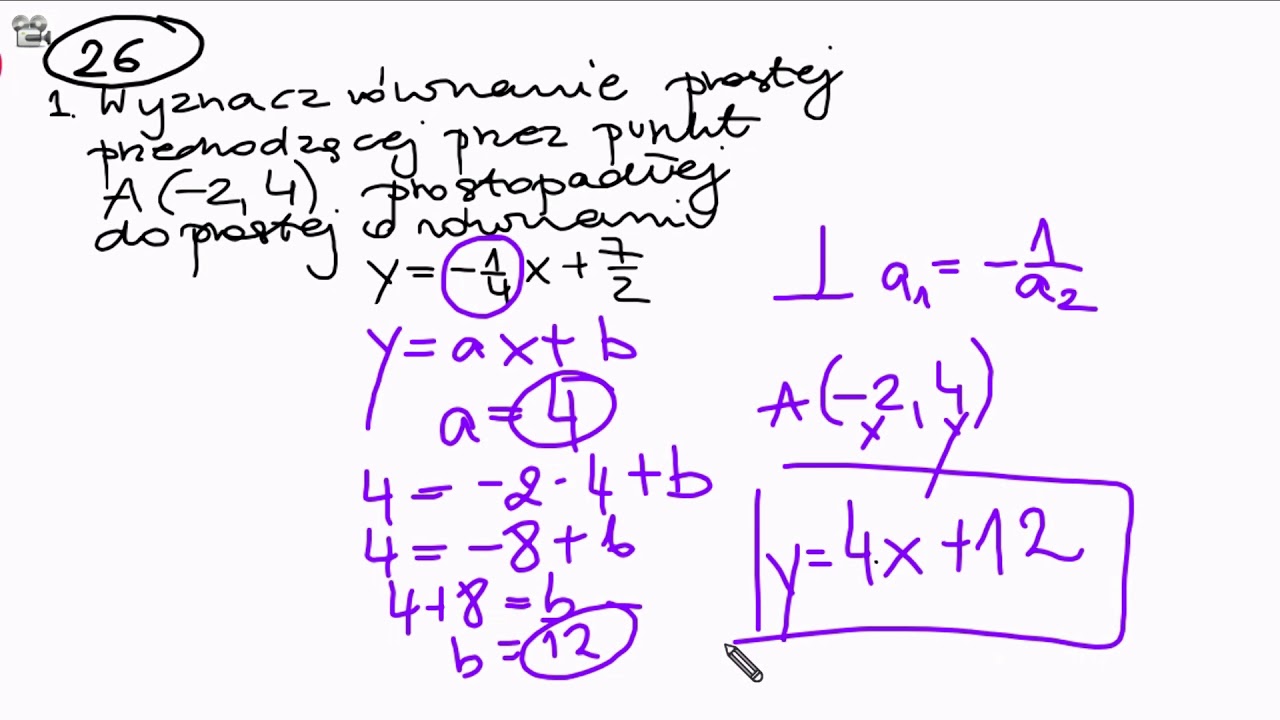 26
1. Wyznacz równanie prostej
przechodzącej przez punkt
A (-2, 4) prostopadłej
do prostej o równaniu
y = -1/4 x + 7/2
y = ax + b
a = 4
4 = -2 · 4 + b
4 = -8 + b
4+8 = b
b = 12
⊥ a₁ = - 1/a₂
A (-2, 4)
x y
y = 4x + 12